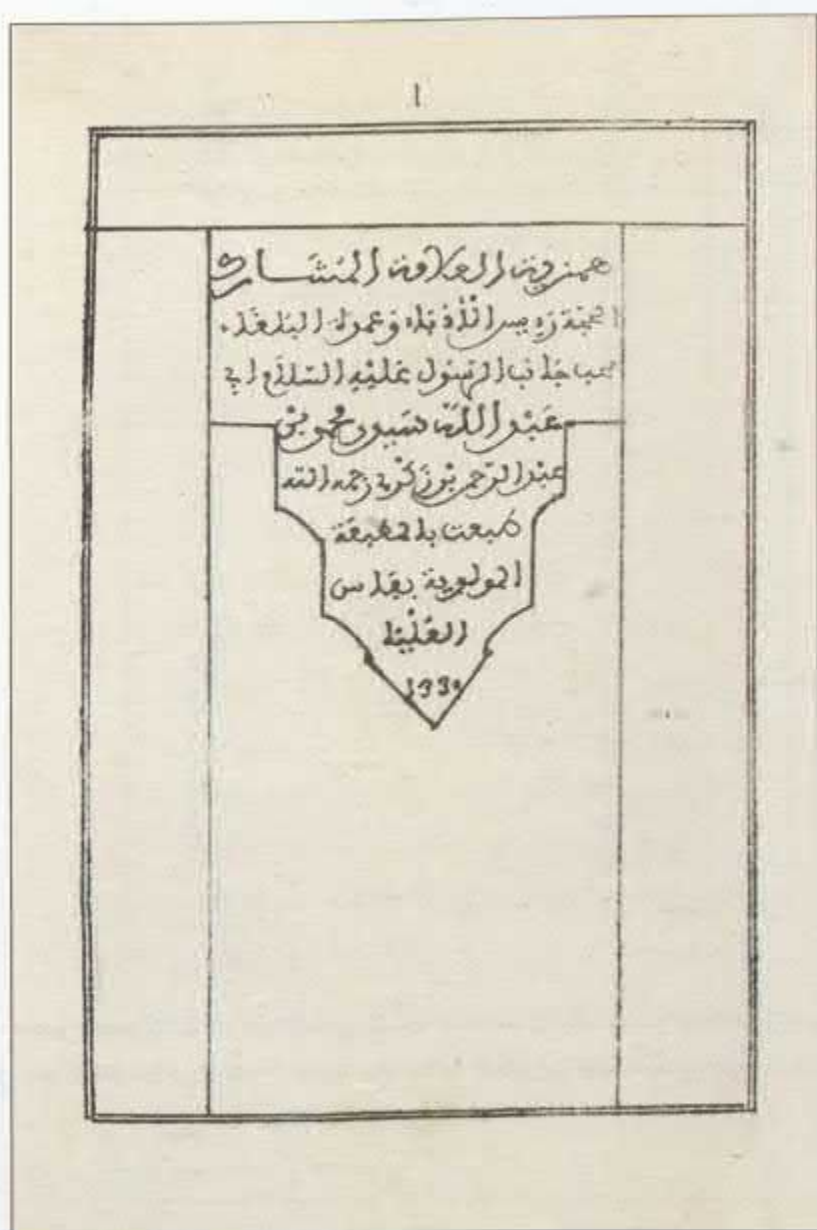 ١
همزية العلامة المشارك
الحجة رءيس الأدباء وعمدة البلغاء
الرسول عليه السلام ابي
عبد الله سيدي محمد بن
عبد الرحمن بن زكري رحمه الله
طبعت بالمطبعة
المولوية بفاس
العليا
1330